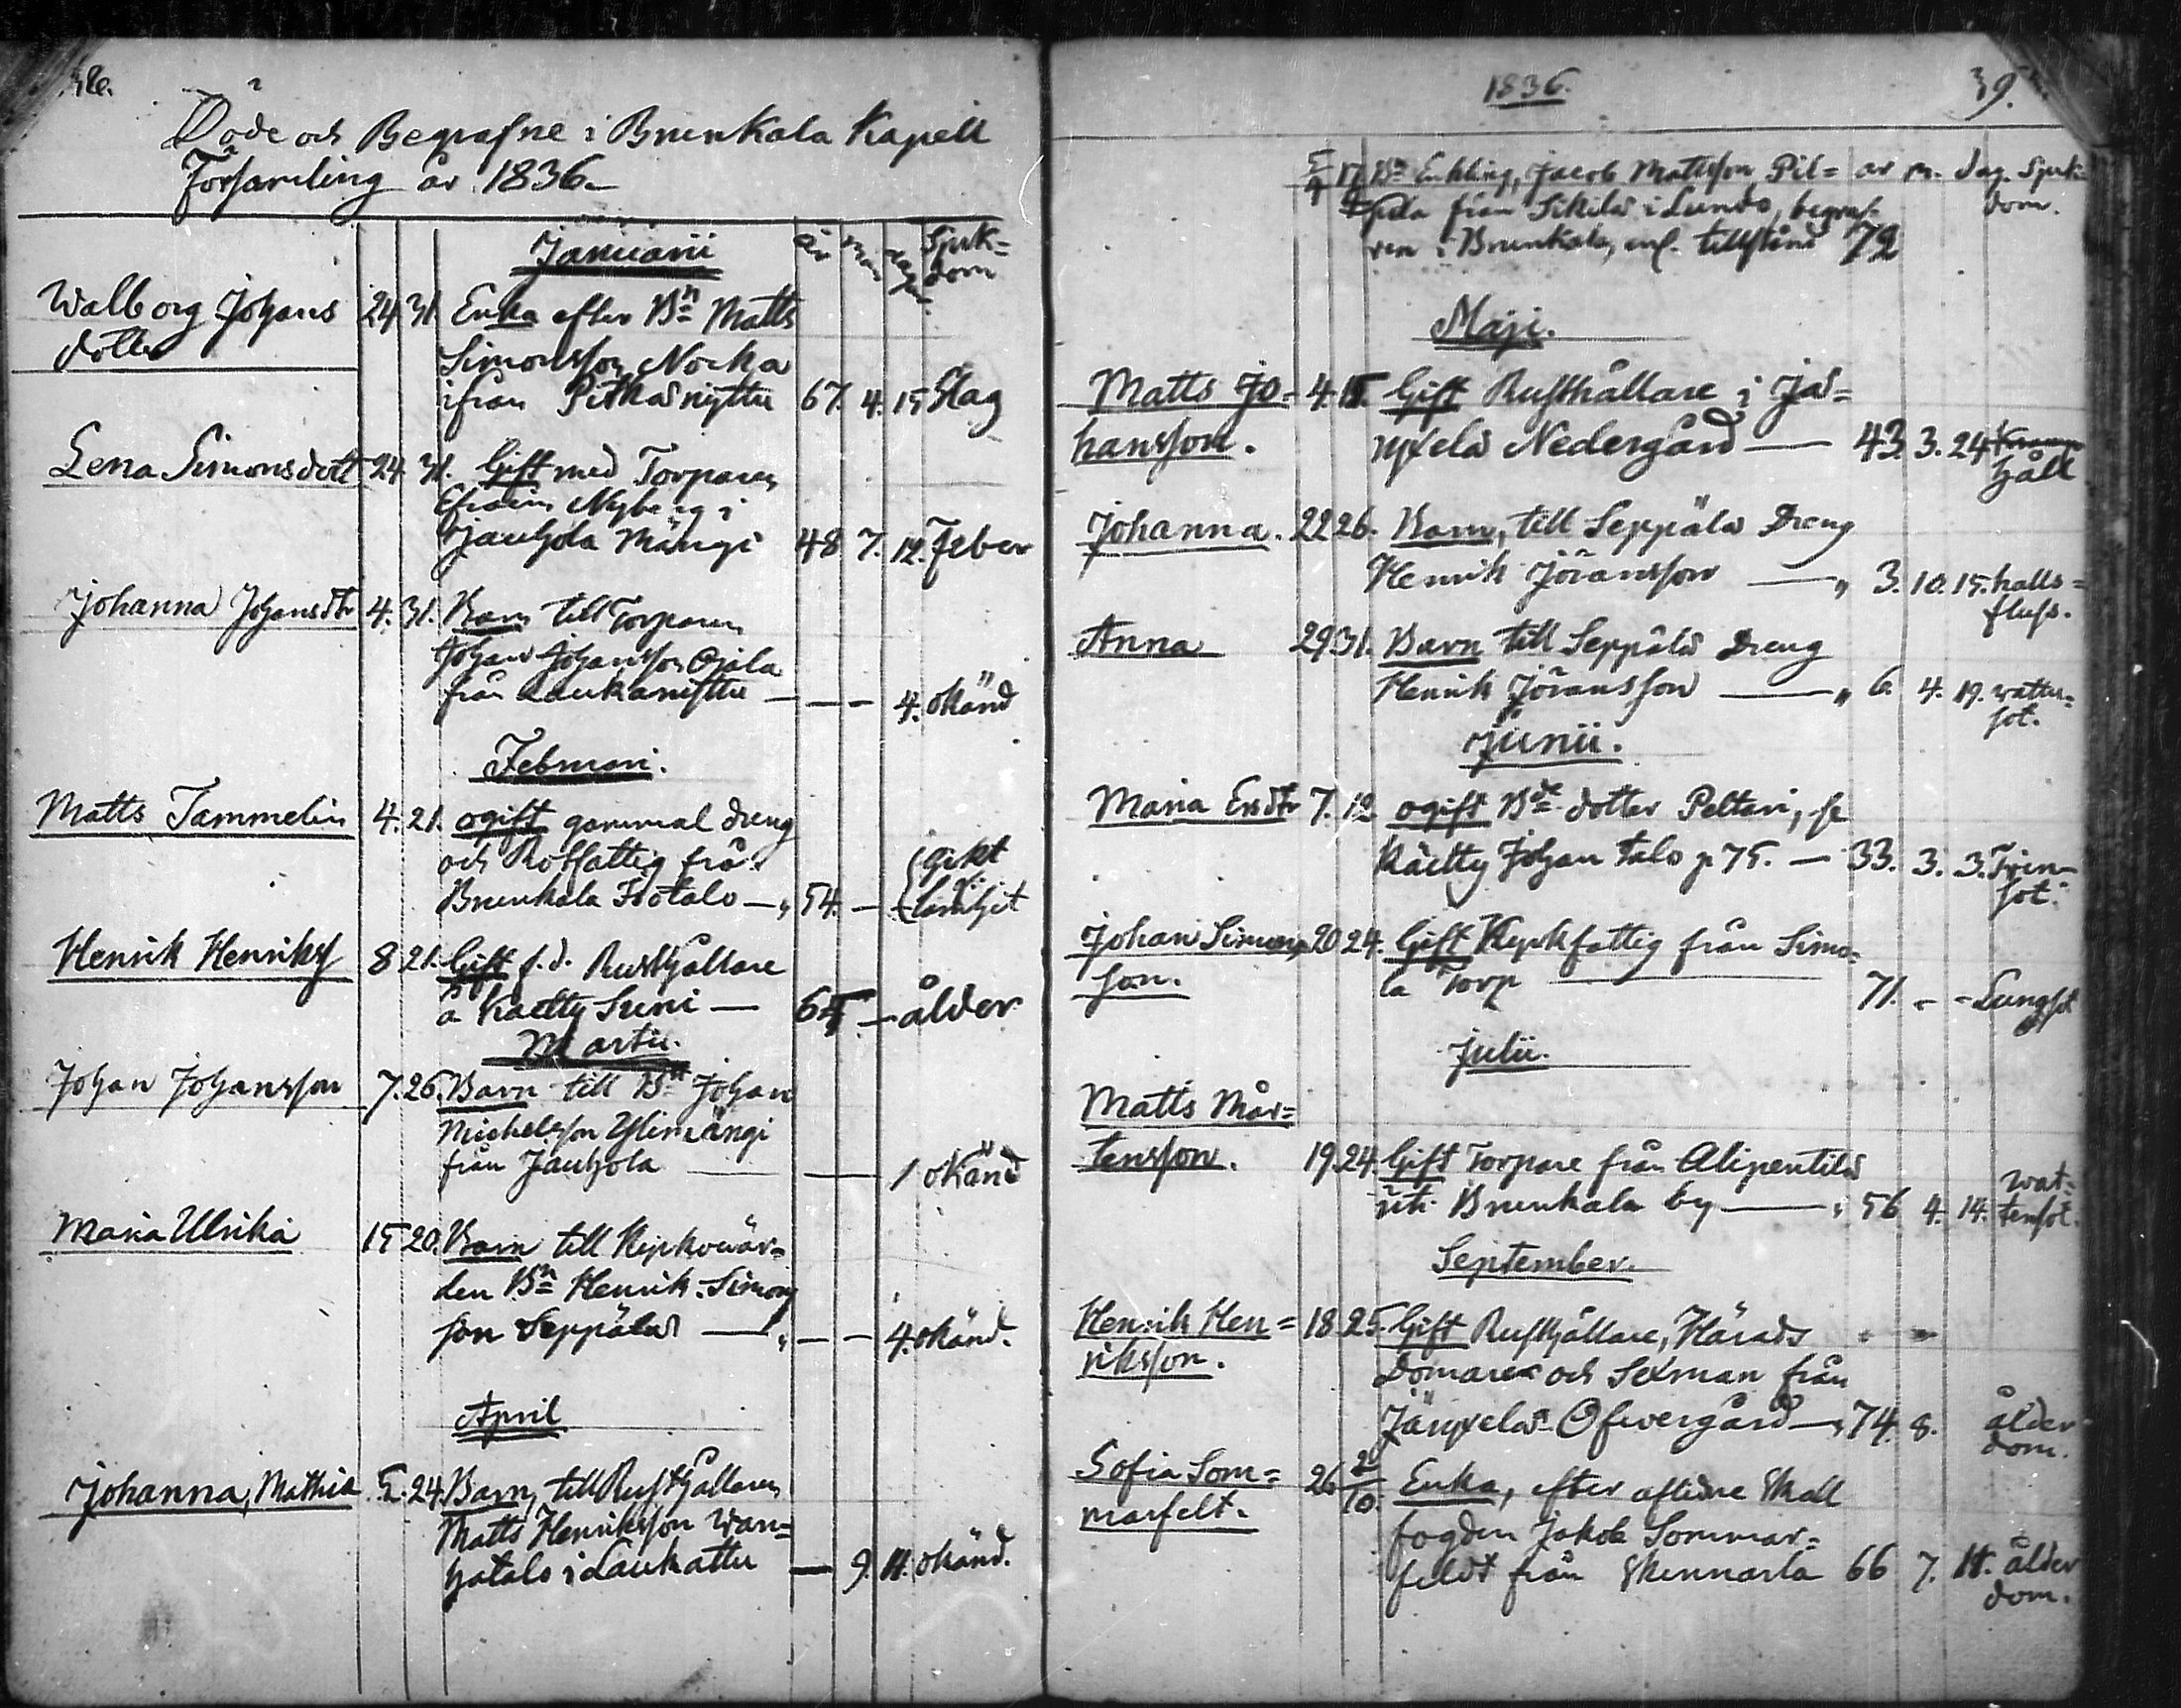 Döde och Begrafne i Brunkala Kapell
Församling år 1836
Januarii
år
Sjuk=
dom
Walborg Johans 24 31 Enka efter Bn Matts
dotter
Simonsson Nocka
ifrån Pitkäsnyttu 67. 4. 15 Slag
Lena Simonsdott 24 31. Gift med Torparen
Efraim Nyberg i
Jauhola Mängi 48 7. 12. Feber
Johanna Johansdtr 4. 31. Barn till Torparen
Johan Johansson Ojala
från — — 4. okänd
Februari.
Matts Tammelin 4. 21. ogift gammal dreng
och Rotfattig från
Brunkala Isotalo — 54. — gikt
Henrik Henriks 8 21. Gift f.d. Rusthållare
å Kaetty Suni — — ålder
Martii.
Johan Johansson 7. 26. Barn till Bn Johan
Michelsson Ylimängi
från Jauhola — 1 okänd
Maria Ulrika 15 20. Barn till Kyrkowär=
den Bn Henrik Simons
son Seppälä — — — 4. okänd.
April
Johanna, Mathia 5. 24. Barn, till Rusthållaren
Matts Henriksson Wan=
hatalo i Laukattu — 9. 11. okänd.
1836.
39.
Bn Enkling, Jacob Mattsson Pil= år m. dag. Sjuk=
dom.
från Sikilä i Lundo, begraf=
ven i Brunkala, enl. tillstånd 72
Maji.
Matts Jo= 4. 15. Gift Rusthållare i Jä=
hansson. Nedergård — 43. 3. 24
håll
Johanna. 22 26. Barn, till Seppälä Dreng
Henrik Jöransson — " 3. 10. 15. halls=
fluss.
Anna 29 31. Barn till Seppälä Dreng
Henrik Jöransson — " 6. 4. 19. watter=
sot.
Junii.
Maria Ersdtr 7. 12. ogift Bde dotter Peltari, se
Kaetty Johan talo p 75. — 33. 3. 3. Tvin=
sot.
Johan Simons 20 24. Gift Kyrkfattig från Simo=
son. la Torp 71. - - Lungsot
Julii.
Matts Mår=
tensson. 19. 24. Gift Torpare från Alipentilä
wat=
uti Brunkala by — 56 4. 14. tensot.
September.
Henrik Hen= 18. 25. Gift Rusthållare, Härads
riksson. Domare och Sexman från
Öfwergård — 74. 8. ålder
dom.
Sofia Som= 26 2/10. Enka, efter aflidne Skall
marfelt. fogden Jakob Sommar=
feldt från Skinnarla 66 7. 11. ålder
dom.